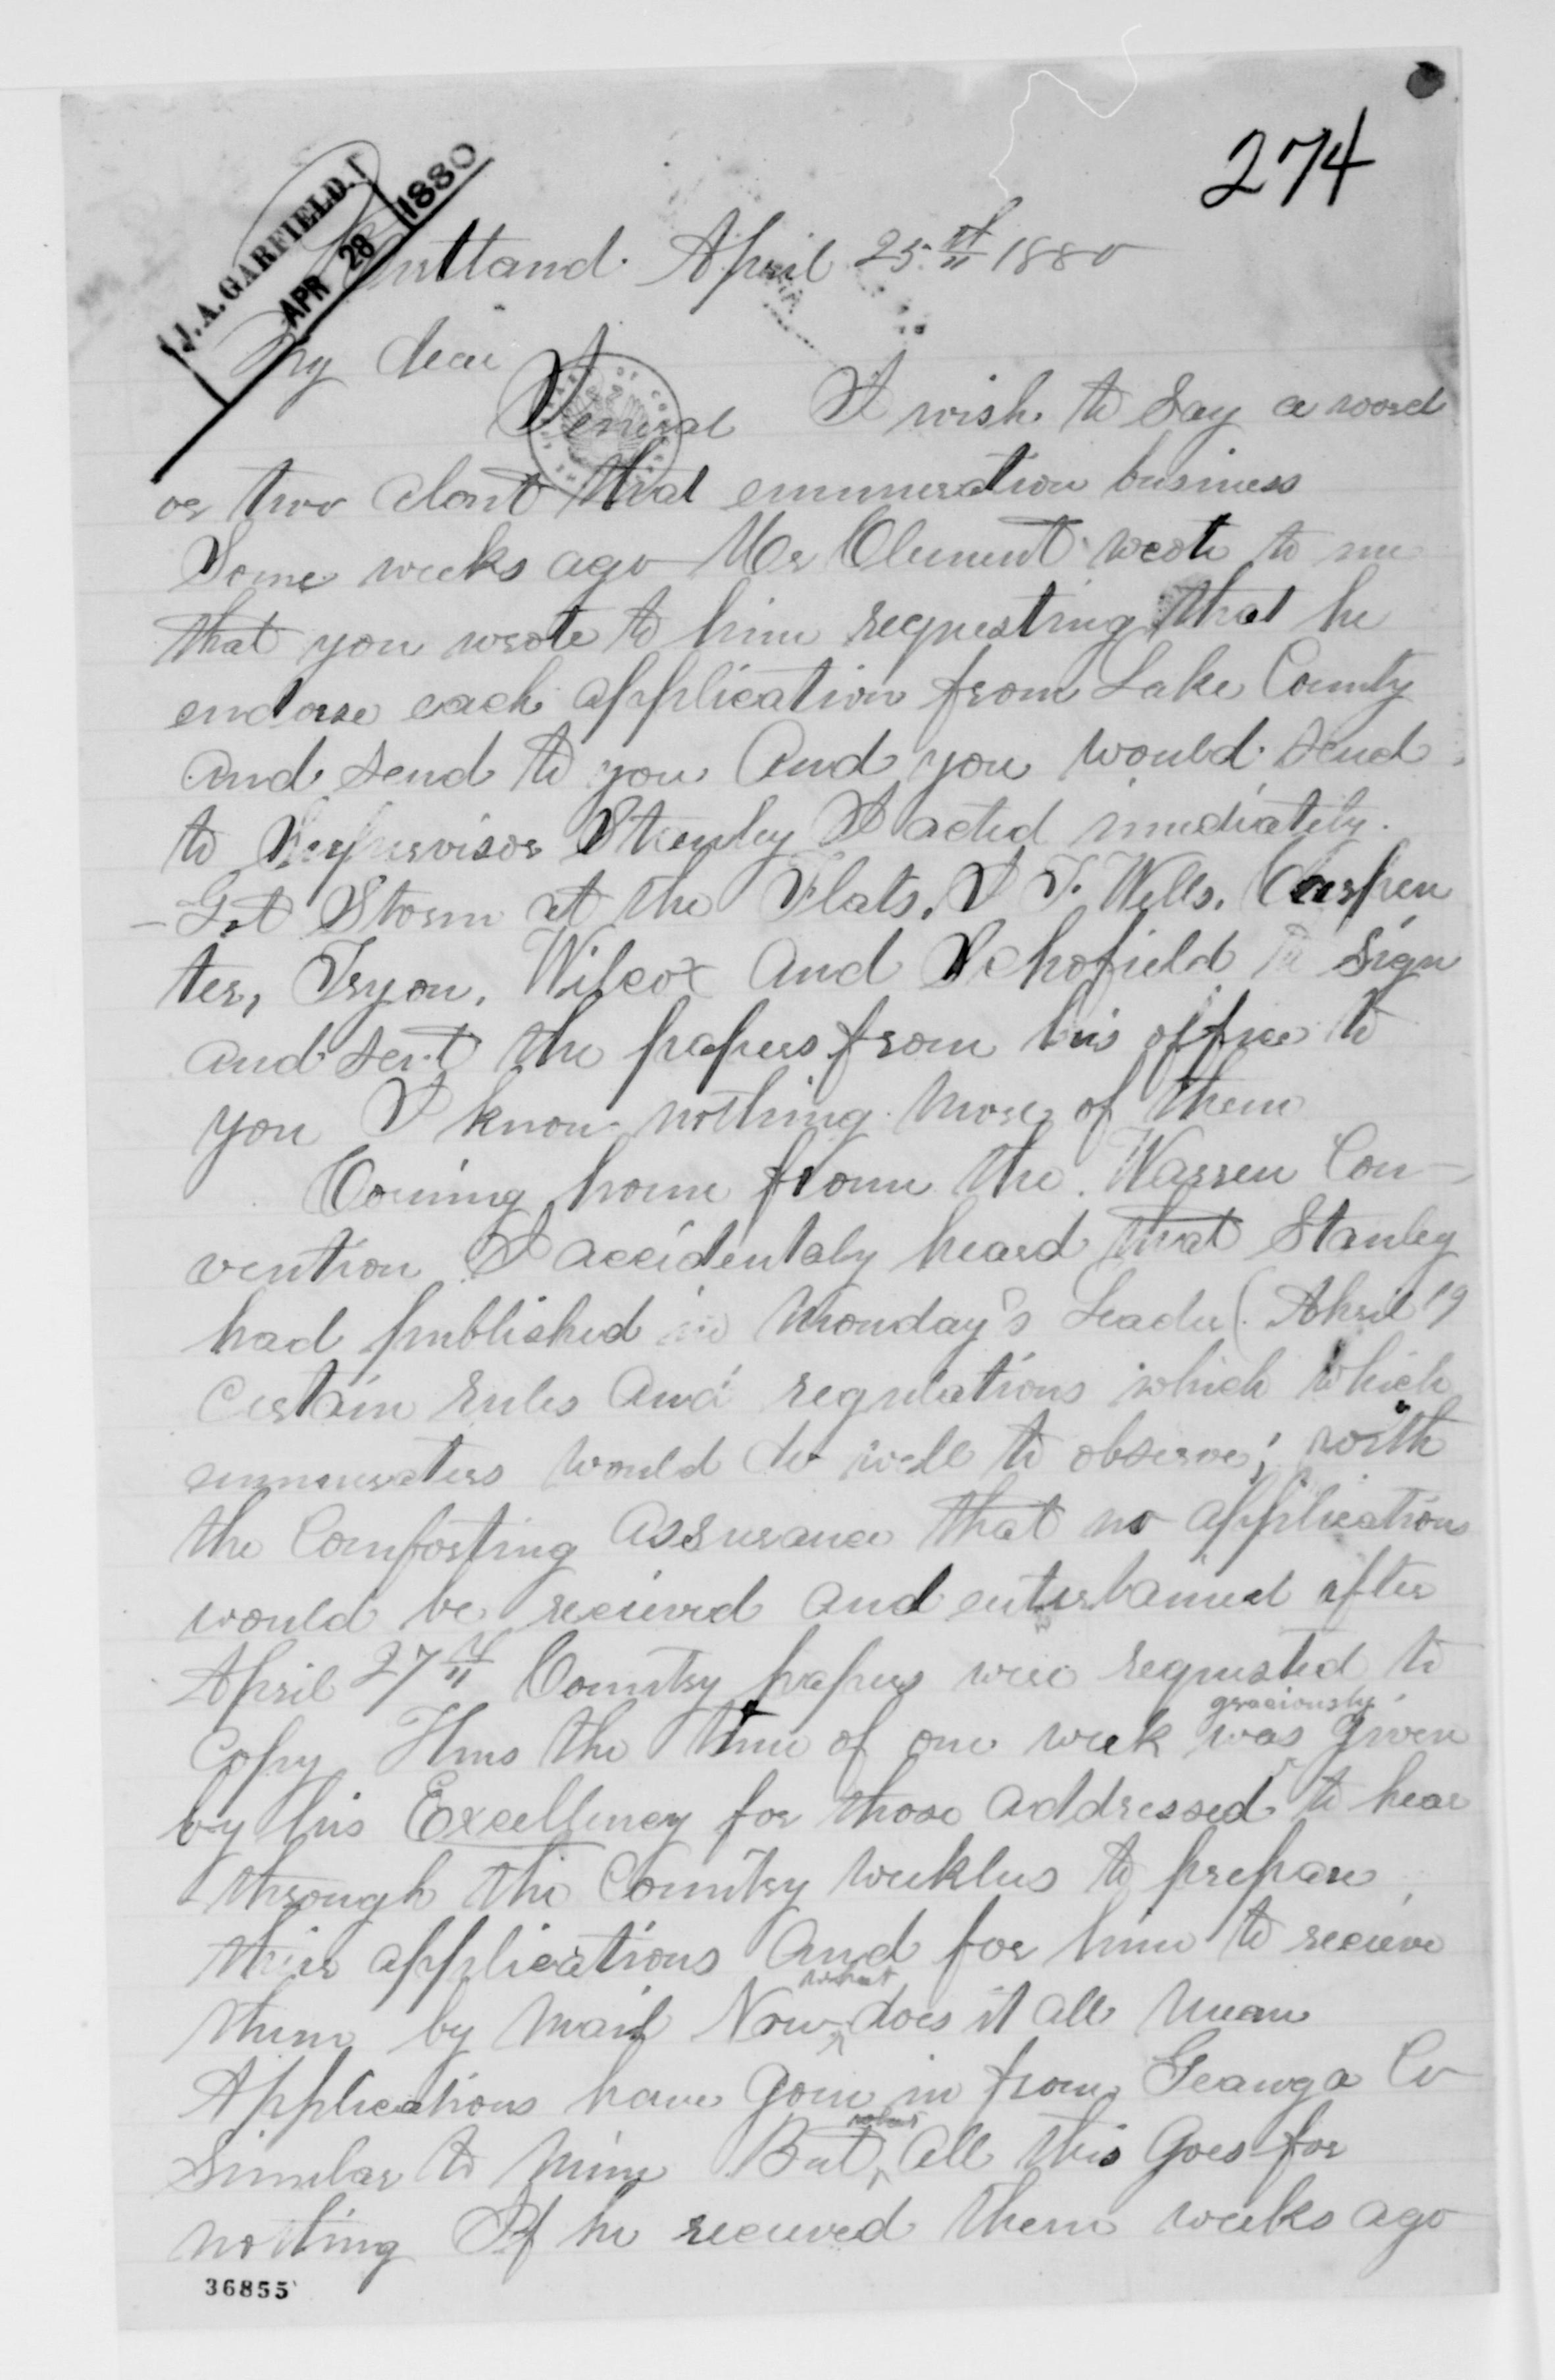 274
J. A. GARFIELD.
APR 28 1880
April 25th 1880
My dear
General I wish to say a word
or two about that enumeration business
Some weeks ago Mr Clement wrote to me
that you wrote to him requesting that he
endorse each application from Lake County
and send to you and you would send
to Supervisor Stanley I acted imediately.
- Got Storm at the Flats, I T. Wells, Carpen
ter, Tryon, Wilcox and Schofield to sign
and sent the papers from his office to
you I know nothing more of them
Coming home from the Warren Con-
vention I accidentaly heard that Stanley
had published in Monday's Leader (April 19
certain rules and regulations which which
enumerators would do well to observe; with
the comforting assurance that no applications
would be recieved and entertained after
April 27th Country papers were requested to
Copy Thus the time of one week was graciously given
by his Excellency for those addressed to hear
through the Country weeklies to prepare
their applications and for him to recieve
them by mail Now what does it all mean
Applications have gone in from Geauga Co
Similar to mine But all this goes for
nothing If he recieved them weeks ago
36855